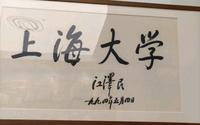 上海大学
江泽民
一九九四年五月四日